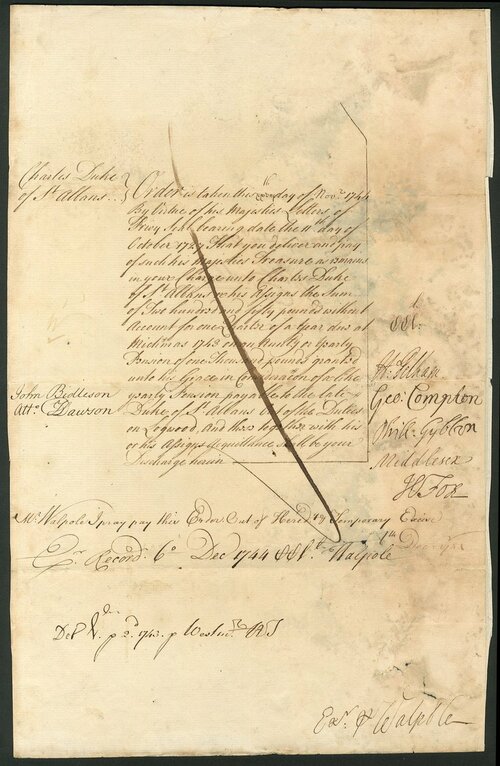 Charles Duke
of St. Albans
Order is taken this day of Novr. 1744
By Virtue of his Majesties Letters of
Privy Seal bearing date the 11th day of
October 1727 That you deliver and pay
of such his Majesties Treasure as remains
in your Charge unto Charles Duke
of St. Albans or his Assigns the Sum
of Two hundred and fifty pounds without
Account for one Quarter of a Year due at
Michmas 1743 on an Annuity or Yearly
Pension of one Thousand pounds granted
unto his Grace in Consideration of the
yearly Pension payable to the late
Duke of St. Albans out of the Duties
on Logwood, And these together with his
or his Assigns Acquittance shall be your
Discharge herein
John Bedleson
Atto. C Dawson
H. Pelham
Geo: Compton
Phill: Gybbon
Middlesex
H Fox
Mr. Walpole I pray pay this Order Out of Hered. & Temporary Excise
Record. 6o. Dec 1744 Walpole
p 2d. 1743. p Westm.
Exr. Walpole